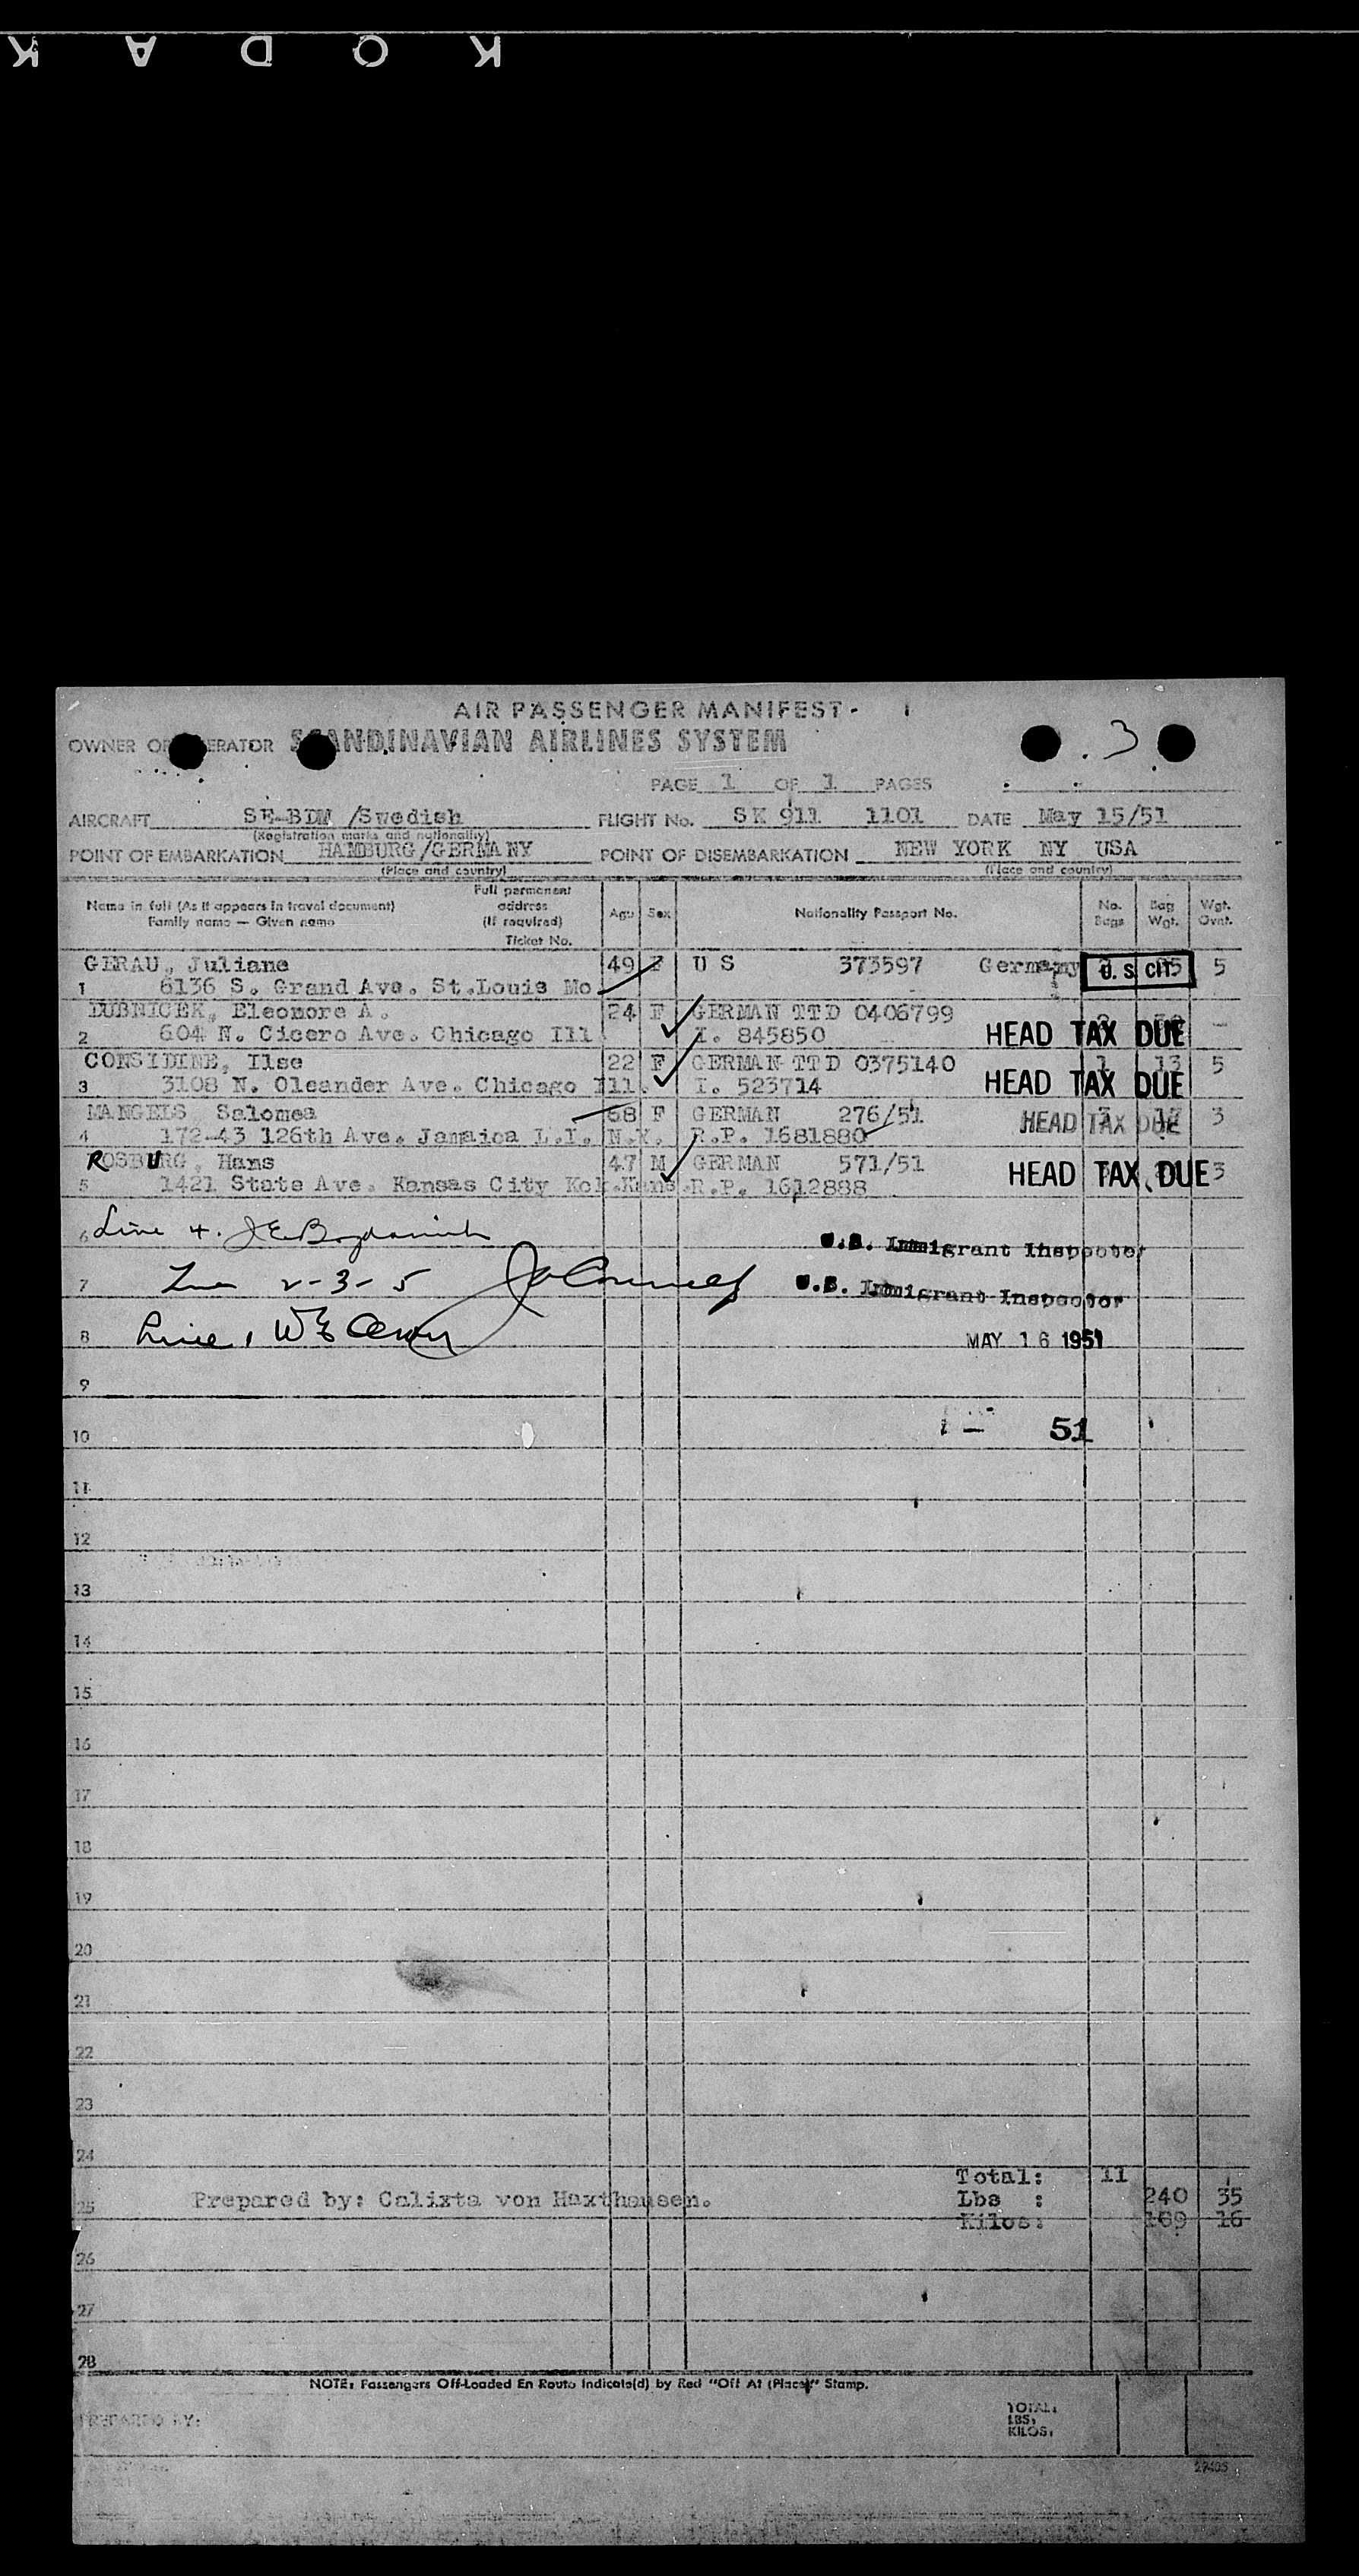 K A D Q K
AIR PASSENGER MANIFEST
3
OWNER OR OPERATOR SCANDINAVIAN AIRLINES SYSTEM
PAGE 1 OF 1 PAGES
AIRCRAFT SE-BDM /Swedish FLIGHT No. SK 911 1101 DATE May 15/51
(Registration marks and nationality)
POINT OF EMBARKATION HAMBURG/GERMANY POINT OF DISEMBARKATION NEW YORK NY USA
(Place and country) (Place and country)
Name in full (As it appears in travel document) Family name — Given name Full permanent address (If required) Ticket No. Age Sex Nationality Passport No. No. Bags Bag Wgt. Wgt. Ovnt.
GIRAU, Juliane 49 F U S 373597 Germany U.S. CIT 5
1 6136 S. Grand Ave. St.Louis Mo.
DUBNICEK, Eleonore A. 24 F GERMAN TTD 0406799
2 604 N. Cicero Ave. Chicago Ill I. 845850 HEAD TAX DUE -
CONSIDINE, Ilse 22 F GERMAN TTD 0375140 1 13 5
3 3108 N. Oleander Ave. Chicago Ill. I. 523714 HEAD TAX DUE
MANGELS, Salomea 68 F GERMAN 276/51 HEAD TAX DUE 3
4 172-43 126th Ave. Jamaica L.I. N.Y. R.P. 1681880
ROSBURG, Hans 47 M GERMAN 571/51 HEAD TAX DUE 3
5 1421 State Ave. Kansas City R.P. 1612888
6 Line 4. U.S. Immigrant Inspector
7 2-3-5 U.S. Immigrant Inspector
8 Line 1 MAY 16 1951
9
10 51
11
12
13
14
15
16
17
18
19
20
21
22
23
24
Total: 11
25 Prepared by: Calixta von Haxthausen. Lbs : 240 35
Kilos: 109 16
26
27
28
NOTE: Passengers Off-Loaded En Route Indicate(d) by Red "Off At (Place)" Stamp.
PREPARED BY: TOTAL:
LBS:
KILOS: